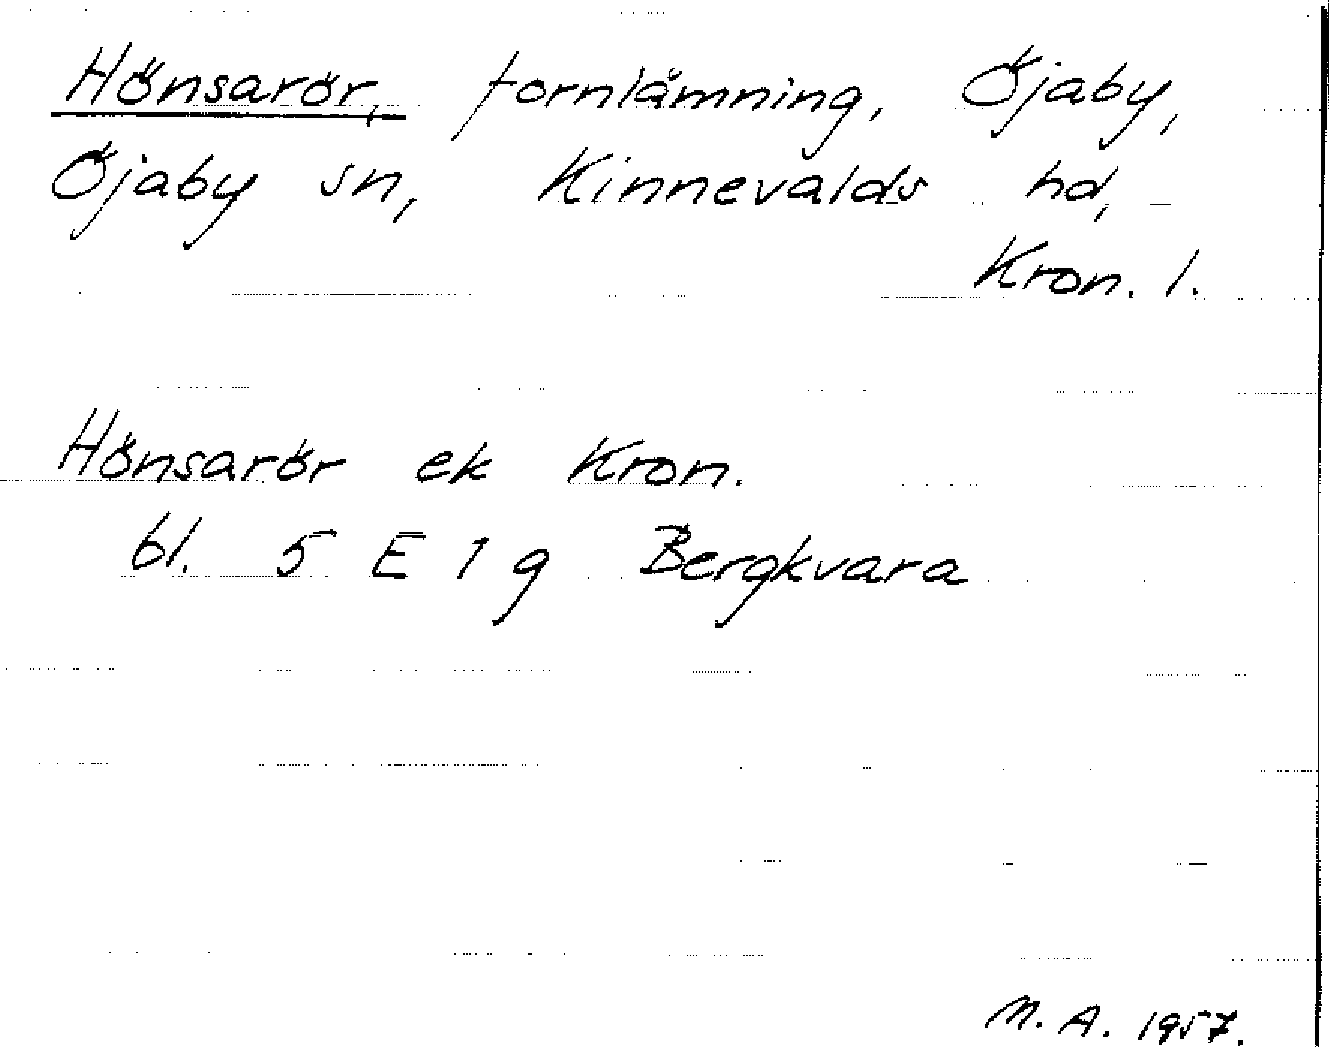 Hönsarör, fornlämning, Öjaby,
Öjaby sn, Kinnevalds hd,
Kron. l.
Hönsarör ek Kron.
bl. 5 E 1 g Bergkvara
M. A. 1957.